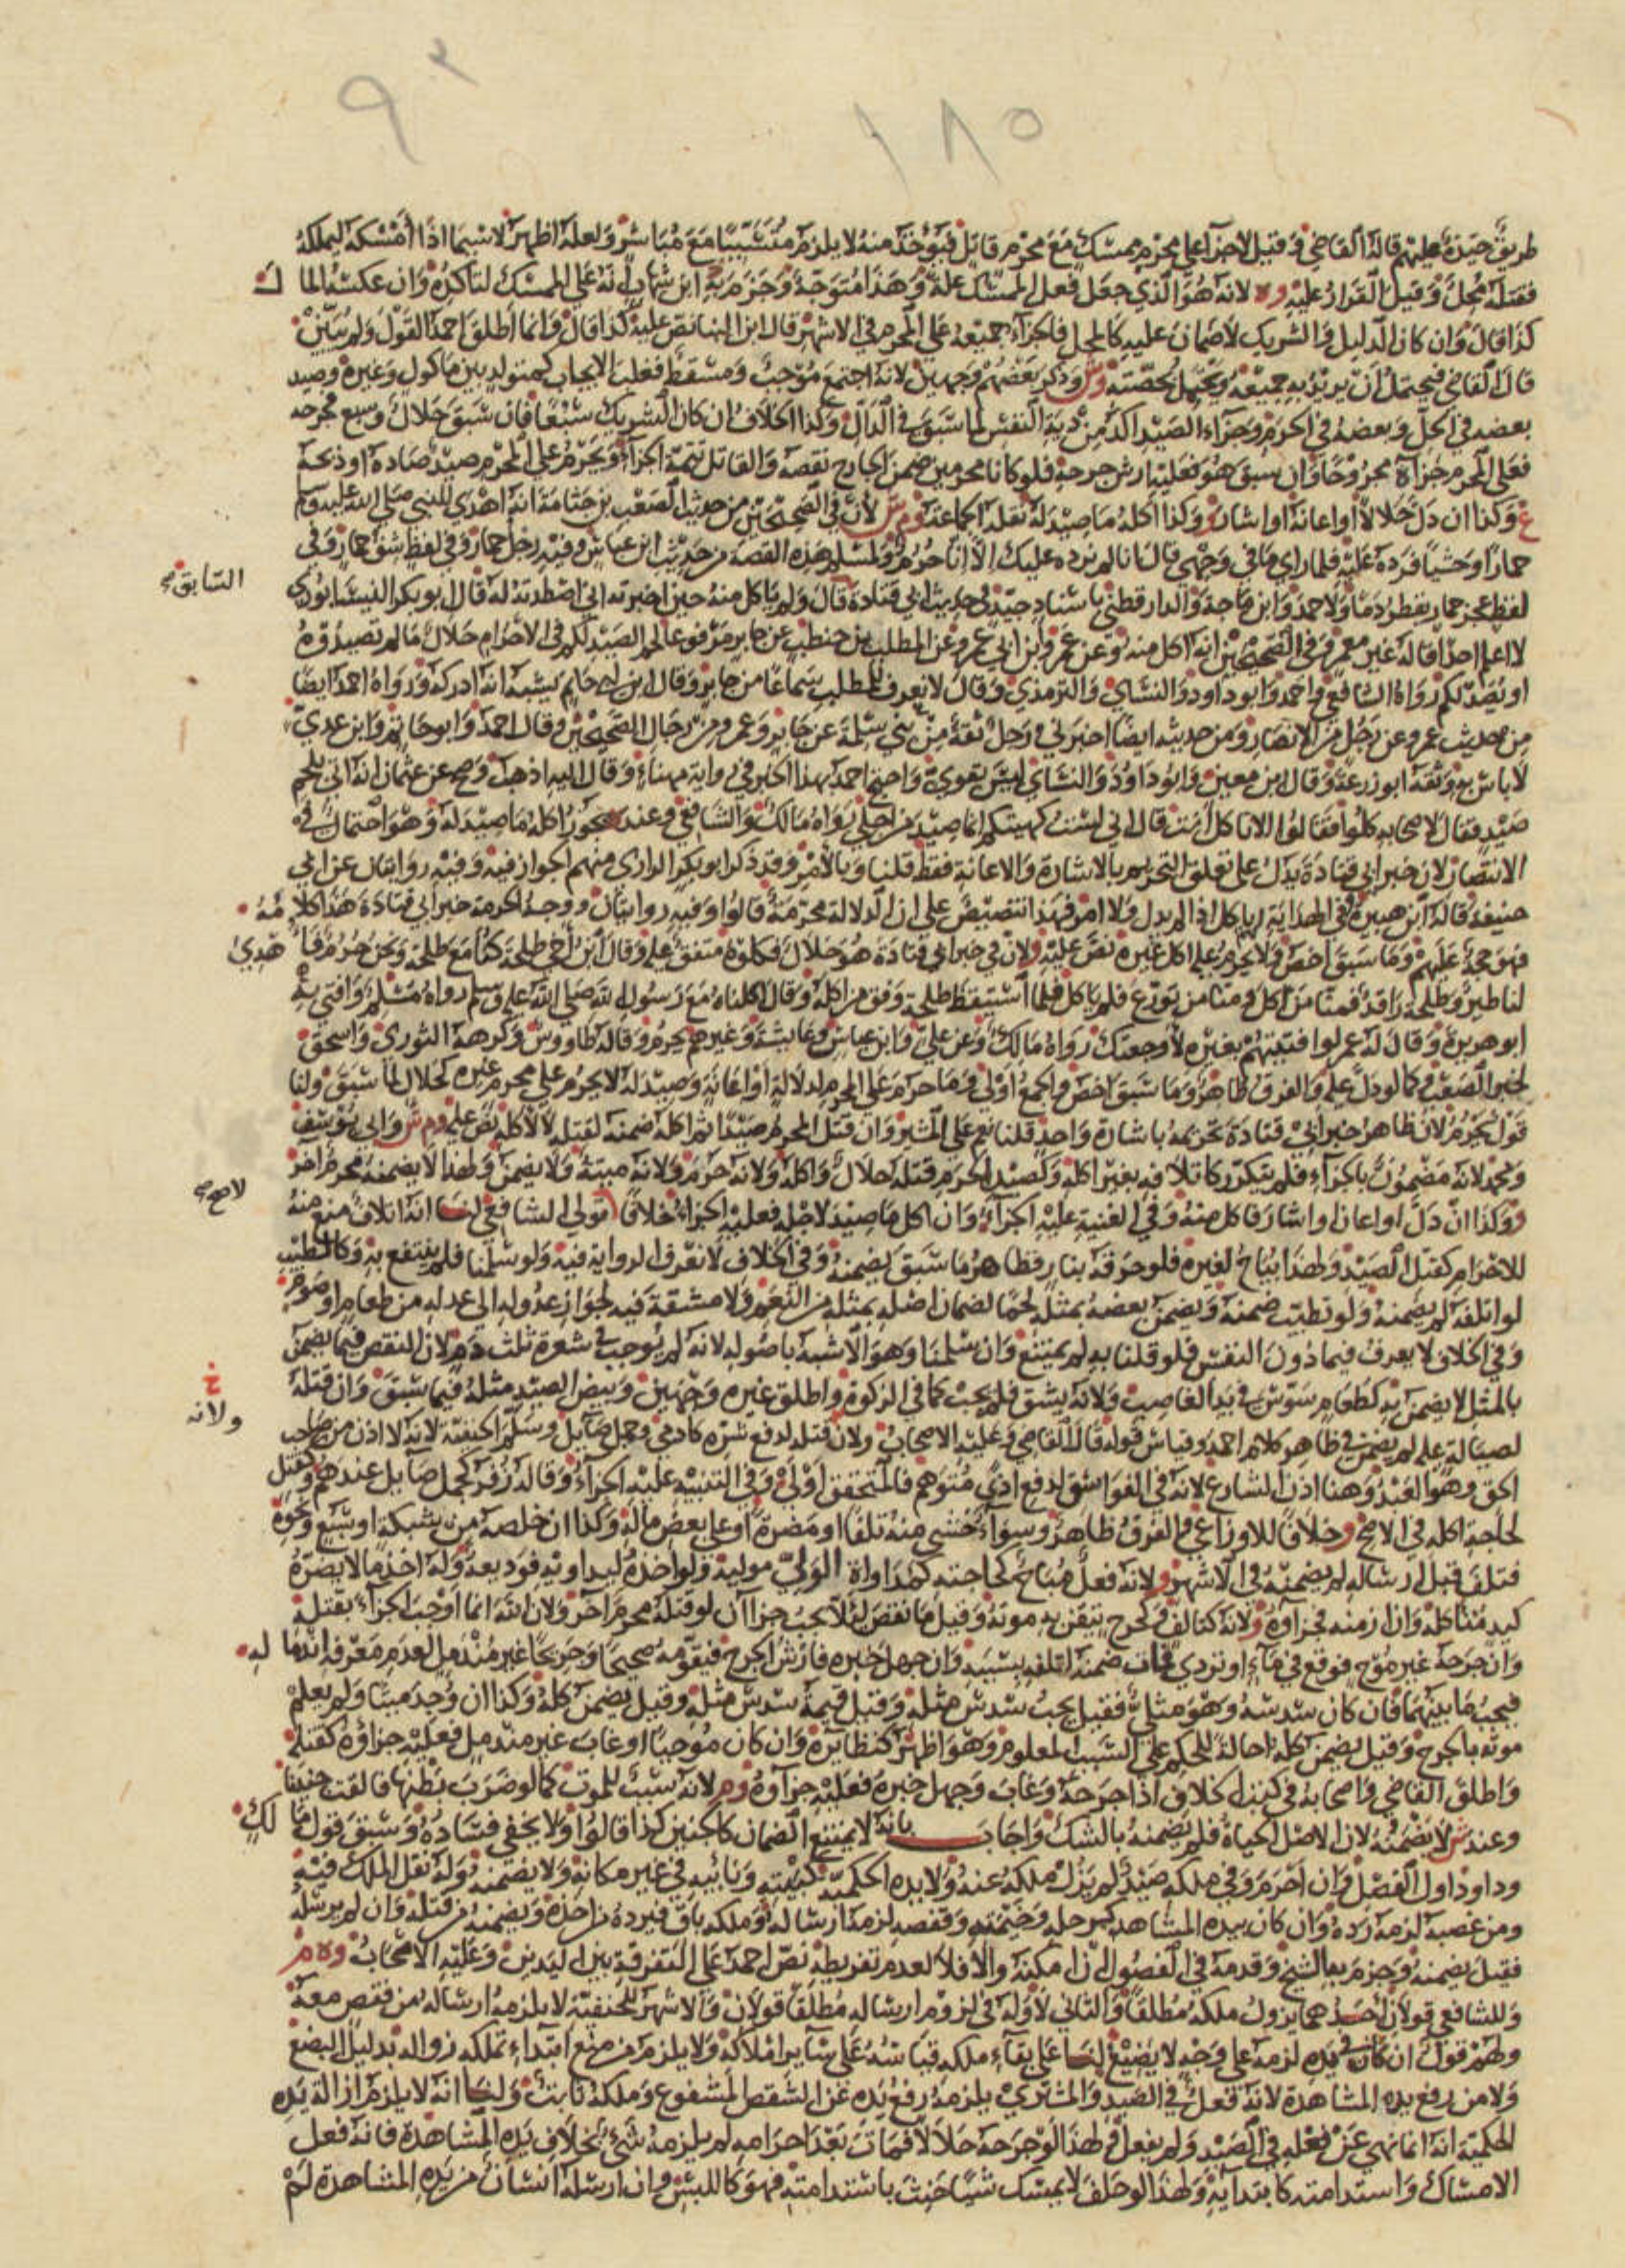 ١٨٥
طريق جيدة عليهم قاله القاضي وقيل لا جزاء على محرم ممسك مع محرم قاتل فيؤخذ منه لا يلزم متسببا مع مباشر ولعله أظهر لا سيما اذا أمسكه ليملكه
فقتله محل وقيل القرار عليه وه لانه هو الذي جعل فعل الممسك علة وهذا متوجه وجزم به ابن شهاب انه على الممسك لتأكده وان عكسه المال
كذا قال وان كان الدليل والشريك لا ضمان عليه كالمحل فالجزاء جميعه على المحرم في الاشهر قال ابن البنا نص عليه كذا قال وانما أطلق احمد القول ولم يبين
قال القاضي فيحتمل ان يريد به جميعه ويحتمل بحصته وش وذكر بعضهم وجهين لانه اجتمع موجب ومسقط فغلب الايجاب كمتولد بين ماكول وغيره وصيد
بعضه في الحل وبعضه في الحرم وجزاء الصيد اكد من دية النفس لما سبق في الدال وكذا الخلاف ان كان الشريك سبعا فان سبق حلال وسبع فجرحه
فعلى المحرم جزاه مجروحا وان سبق هو فعليه ارش جرحه فلو كانا محرمين ضمن الجارح نقصه والقاتل تتمة الجزاء ويحرم على المحرم صيد صاده او ذبحه
ع وكذا ان دل حلالا او اعانه او اشار و وكذا أكله ما صيد له نقله الجماعة وم ش لأن في الصحيحين من حديث الصعب بن جثامة انه اهدى للنبي صلى الله عليه وسلم
حمارا وحشيا فرده عليه فلما راى ما في وجهي قال انا لم نرده عليك الا انا حرم ولمسلم هذه القصة من حديث ابن عباس وفيه رجل حمار وفي لفظ شق حمار وفي
السابق صح
لفظ عجز حمار يقطر دما ولاحمد وابن ماجة والدارقطني باسناد جيد في حديث ابي قتادة قال ولم ياكل منه حين اخبرته اني اصطدته له قال ابو بكر النيسابوري
لا اعلم احدا قاله غير معمر وفي الصحيحين انه اكل منه وعن عمرو بن ابي عمرو عن المطلب بن حنطب عن جابر مرفوعا لحم الصيد لكم في الاحرام حلال ما لم تصيدوه
او يصد لكم رواه الشافعي واحمد وابو داود والنسائي والترمذي وقال لا نعرف للمطلب سماعا من جابر وقال ابن ابي حاتم يشبه انه ادركه ورواه احمد ايضا
من حديث عمرو عن رجل من الانصار ومن حديثه ايضا اخبرني رجل ثقة من بني سلمة عن جابر وعمرو من رجال الصحيحين وقال احمد وابو حاتم وابن عدي
لا باس به وثقه ابو زرعة وقال ابن معين وابو داود والنسائي ليس بقوي واحتج احمد بهذا الخبر في رواية مهناء وقال اليه اذهب وصح عن عثمان انه اتي بلحم
صيد فقال لاصحابه كلوا فقالوا الا تاكل انت قال اني لست كهيئتكم انما صيد من اجلي رواه مالك والشافعي وعند ه يجوز اكله ما صيد له وهو احتمال في
الانتصار لان خبر ابي قتادة يدل على تعلق التحريم بالاشارة والاعانة فقط قلنا وبالامر وقد ذكر ابو بكر الرازي منهم الجواز فيه وفيه روايتان عن ابي
حنيفة قاله ابن هبيرة وفي الهداية له اكله اذا لم يدل ولا امر فهذا تنصيص على ان الدلالة محرمة قالوا وفيه روايتان ووجه الحرمة خبر ابي قتادة هذا كلامه
فهو حجة عليهم وما سبق اخص ولا يحرم على اكل غيره نص عليه ولان في خبر ابي قتادة هو حلال فكلوه متفق عليه وقال ابن اخي طلحة كنا مع طلحة ونحن حرم فاهدي
لنا طير وطلحة راقد فمنا من اكل ومنا من تورع فلم ياكل فلما استيقظ طلحة وفق من اكله وقال اكلناه مع رسول الله صلى الله عليه وسلم رواه مسلم وافتى به
ابو هريرة وقال له عمر لو افتيتهم بغيره لاوجعتك رواه مالك وعن علي وابن عباس وعايشة وغيرهم يحرم وقاله طاووس وكرهه الثوري واسحق
لخبر الصعب وكما لو دل عليه والفرق ظاهر وما سبق اخص والجمع اولى وما حرم على المحرم لدلالة او اعانة وصيد له لا يحرم على محرم غيره كحلال لما سبق ولنا
قول يحرم لان ظاهر خبر ابي قتادة تحريمه باشارة واحد قلنا نعم على المشير وان قتل المحرم صيدا ثم اكله ضمنه لقتله لا لاكله نص عليه وم ش وابي يوسف
ومحمد لانه مضمون بالجزاء فلم يتكرر كاتلافه بغير اكله وكصيد الحرم قتله حلال واكله ولانه حرم ولانه ميتة ولا يضمن ولهذا لا يضمنه محرم اخر
لا صح
وكذا ان دل او اعان او اشار فاكل منه وفي الغنية عليه الجزاء وان اكل ما صيد لاجله فعليه الجزاء خلافا لقولي الشافعي لنا انه اتلاف منع منه
للاحرام كقتل الصيد ولهذا يباح لغيره فلو حرقه بنار فظاهر ما سبق يضمنه وفي الخلاف لا نعرف الرواية فيه ولو سلمنا فلم ينتفع به وكالطيب
لو اتلفه لم يضمنه ولو تطيب ضمنه ويضمن بعضه بمثله لحما لضمان اصله بمثله من النعم ولا مشقة فيه لجواز عدوله الى عدله من طعام او صوم
وفي الخلاف لا يعرف فيما دون النفس فلو قلنا به لم يمتنع وان سلمنا وهو الاشبه باصوله لانه لم يوجب في شعرة ثلث دم لان النقص فيما يضمن
خ
بالمثل لا يضمن به كطعام سوس في يد الغاصب ولانه يشق فلم يجب كما في الزكوة واطلق غيره وجهين وبيض الصيد مثله فيما سبق وان قتله
ولانه
لصياله عليه لم يضمن في ظاهر كلام احمد وقياس قوله قاله القاضي وعليه الاصحاب ولان قتله لدفع شره كادمي وجمل صايل وسلم الحنفية لانه لا اذن من صاحب
الحق وهو العبد وهنا اذن الشارع لانه في الفواسق لدفع اذى متوهم فالمتحقق اولى وفي التنبيه عليه الجزاء وقاله زفر كجمل صايل عندهم وكقتل
لحاجة اكله في الاصح وخلافا للاوزاعي والفرق ظاهر وسواء خشي منه تلفا او مضرة او على بعض ماله وكذا ان خلصه من شبكة او سبع ونحوه
فتلف قبل ارساله لم يضمنه في الاشهر ولانه فعل مباح لحاجته كمداواة الولي موليه ولو اخذه ليداويه فوديعة وله اخذ ما لا يضره
كيد متاكله وان ازمنه فجزاؤه ولانه كتالف وكجرح تيقن به موته وقيل ما نقص لئلا يجب جزاآن لو قتله محرم آخر ولان الله انما اوجب الجزاء بقتله
وان جرحه غير موح فوقع في ماء او تردى فمات ضمنه لتلفه بسببه وان جهل خبره فارش الجرح فيقومه صحيحا وجريحا غير مندمل لعدم معرفة اندماله
فيجب ما بينهما فان كان سدسه وهو مثلي فقيل يجب سدس مثله وقيل قيمة سدس مثله وقيل يضمن كله وكذا ان وجد ميتا ولم يعلم
موته بالجرح وقيل يضمن كله احالة للحكم على السبب المعلوم وهو اظهر كنظائره وان كان موحيا او غاب غير مندمل فعليه جزاؤه كقتله
واطلق القاضي واصحابه في كتب الخلاف اذا جرحه وغاب وجهل خبره فعليه جزاؤه وم لانه سبب للموت كما لو ضرب بطنها فالقت جنينا
وعند ش لا يضمنه لان الاصل الحياة فلم يضمنه بالشك واجاب بانه لا يمتنع الضمان كالجنين كذا قالوا ولا يخفى فساده وسبق قول مالك
وداود اول الفصل وان احرم وفي ملكه صيد لم يزل ملكه عنه ولا يده الحكمية كبيته ونائبه في غير مكانه ولا يضمنه وله نقل الملك فيه
ومن غصبه لزمه رده وان كان بيده المشاهدة كرحله وخيمته وقفصه لزمه ارساله وملكه باق فيرده من اخذه ويضمنه من قتله وان لم يرسله
فقيل يضمنه وجزم به الشيخ وقدمه في الفصول ان امكنه والا فلا لعدم تفريطه نص احمد على التفرقة بين اليدين وعليه الاصحاب وه م
وللشافعي قولان احدهما يزول ملكه مطلقا والثاني لا وله في لزوم ارساله مطلقا قولان والاشهر للحنفية لا يلزمه ارساله من قفص معه
ولهم قول ان كان في يده لزمه على وجه لا يضيع لنا على بقاء ملكه قياسه على سائر املاكه ولا يلزم من منع ابتداء تملكه زواله بدليل البضع
ولا من رفع يده المشاهدة لانه فعل في الصيد والمشتري يلزمه رفع يده عن الشقص المشفوع وملكه ثابت ولنا انه لا يلزم ازالة يده
الحكمية انه انما نهي عن فعله في الصيد ولم يفعل ولهذا لو جرحه حلالا فمات بعد احرامه لم يلزمه شيء بخلاف يده المشاهدة فانه فعل
الامساك واستدامته كابتدايه ولهذا لو حلف لا يمسك شيا حنث باستدامته فهو كاللبس وان ارسله انسان من يده المشاهدة لم